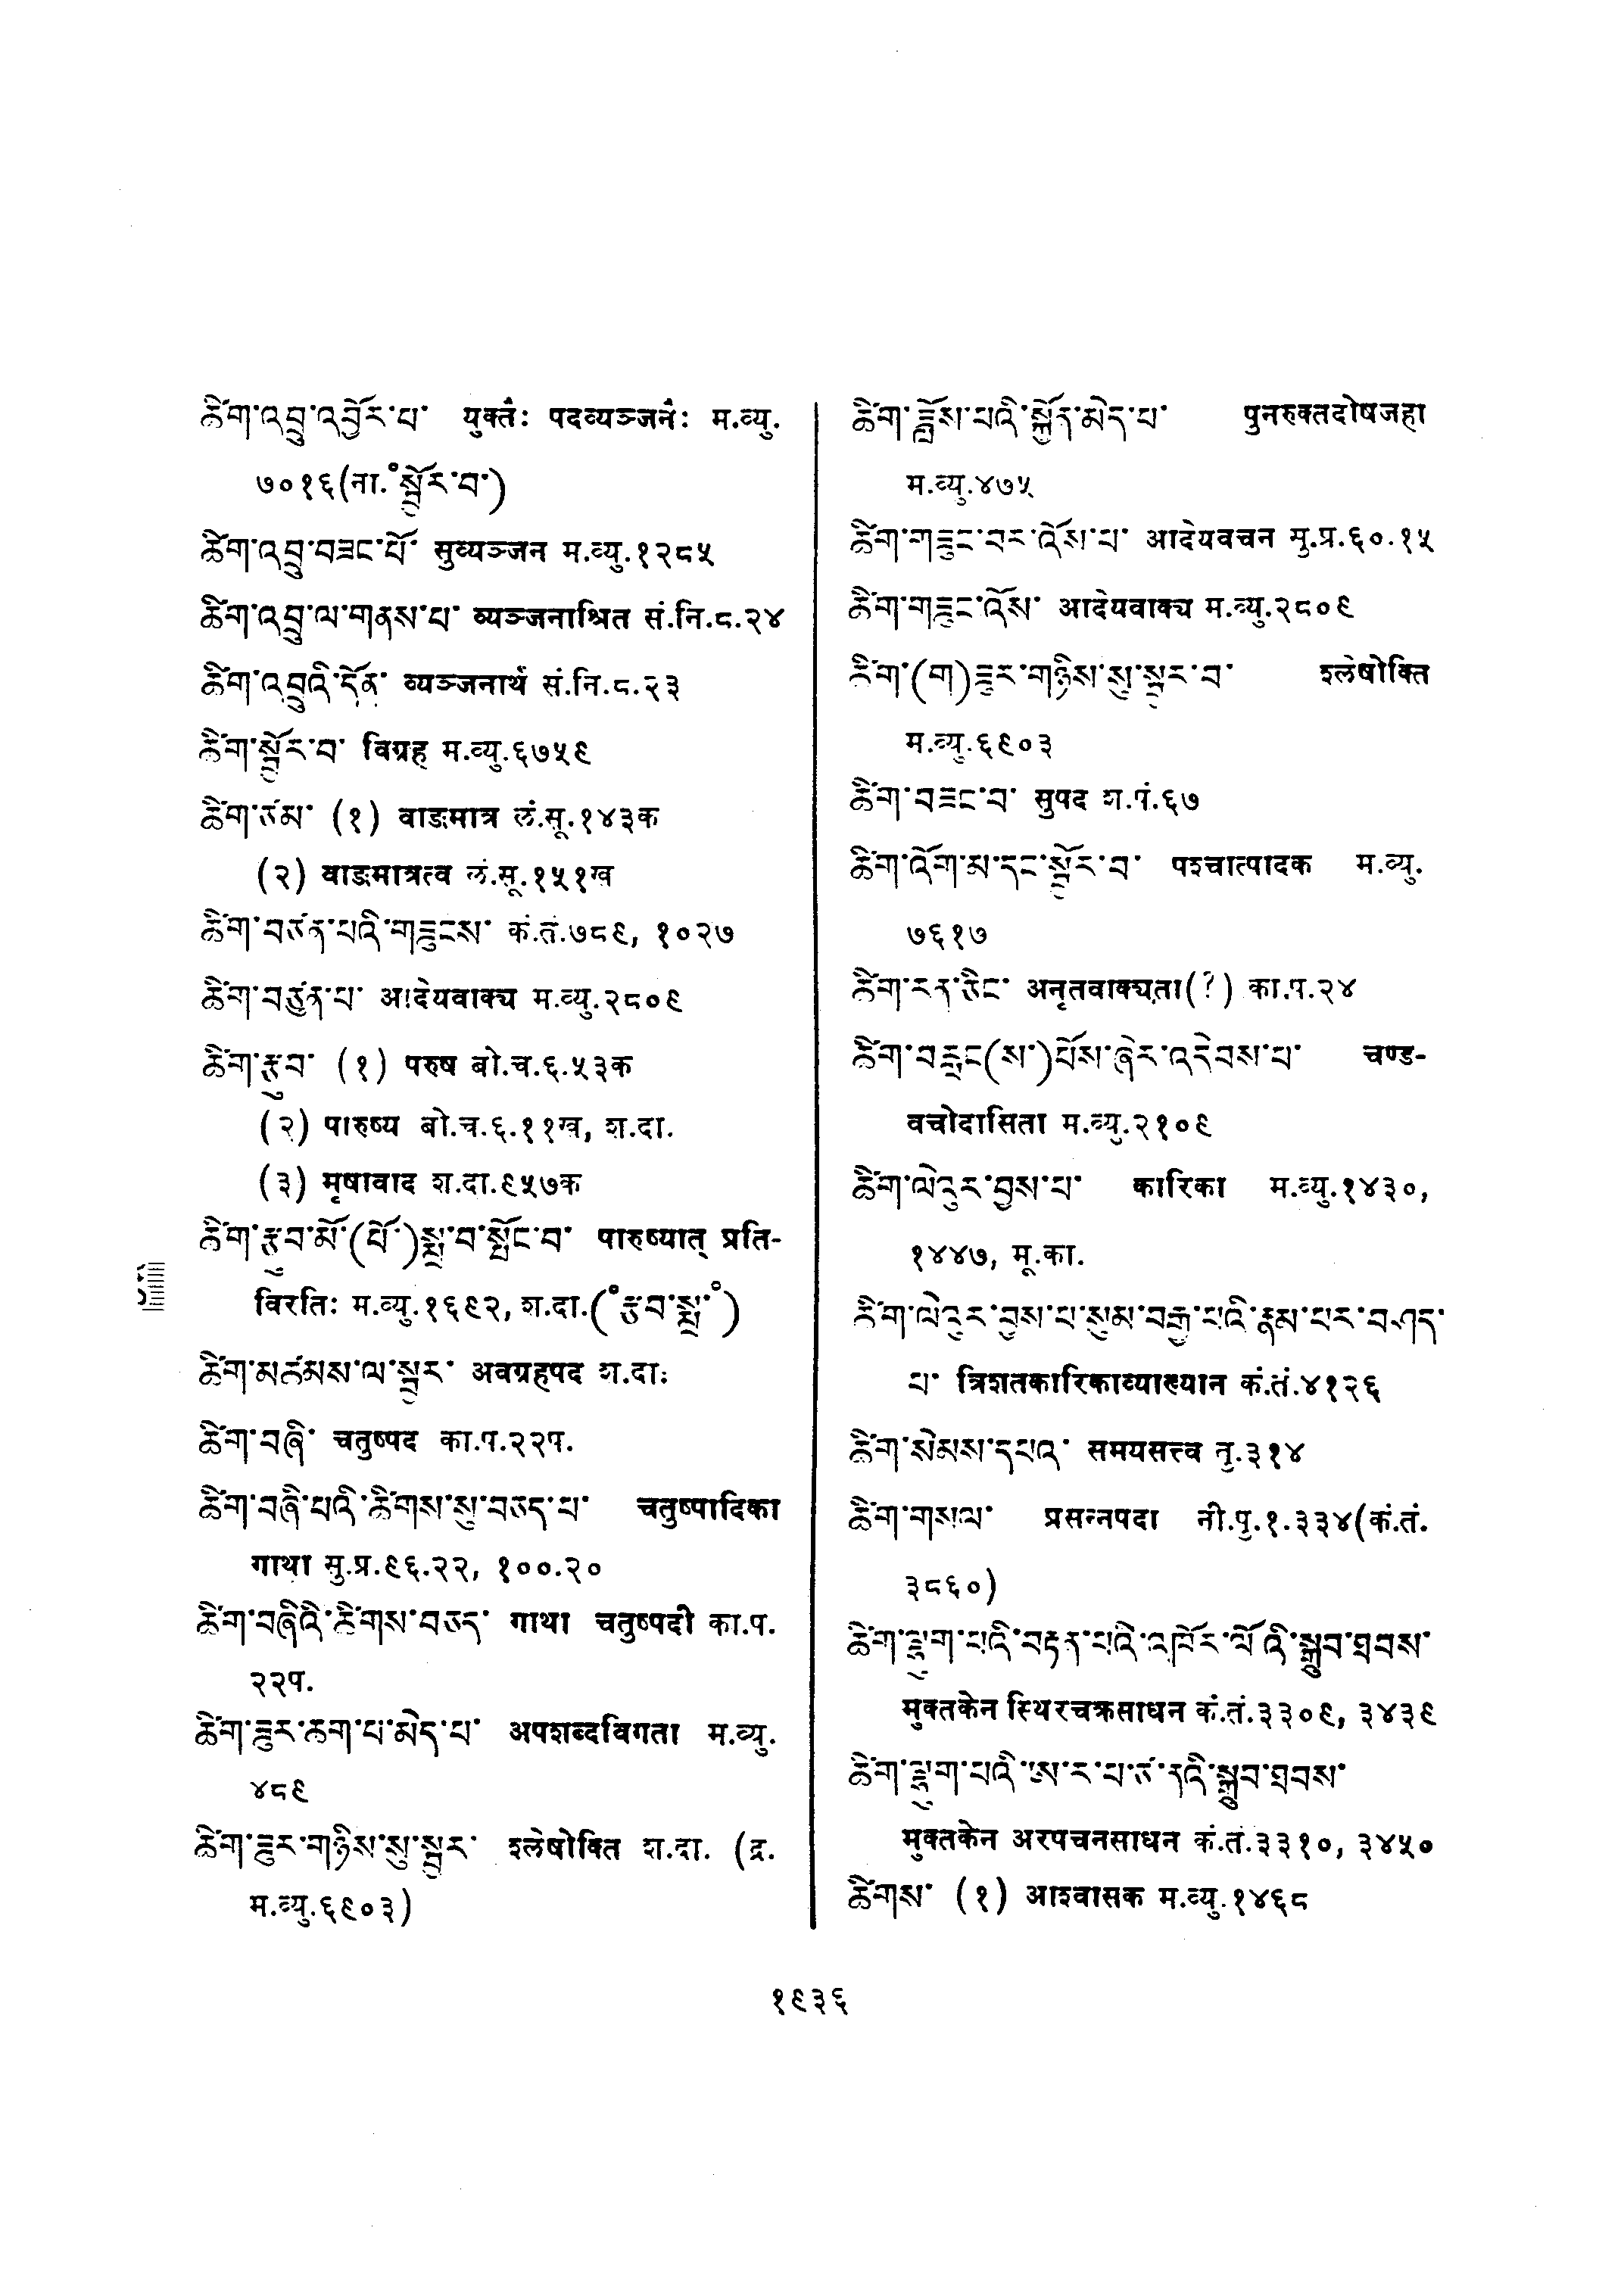 ཚིག་འབྲུ་འབྱོར་པ་ युक्तैः पदव्यञ्जनैः म.व्यु.
७०१६(ना.॰སྦྱོར་བ་)
ཚིག་འབྲུ་བཟང་པོ་ सुव्यञ्जन म.व्यु.१२८५
ཚིག་འབྲུ་ལ་གནས་པ་ व्यञ्जनाश्रित सं.नि.८.२४
ཚིག་འབྲུའི་དོན་ व्यञ्जनार्थ सं.नि.८.२३
ཚིག་སྦྱོར་བ་ विग्रह म.व्यु.६७५९
ཚིག་ཙམ་ (१) वाङमात्र लं.सू.१४३क
(२) वाङमात्रत्व लं.सू.१५१ख
ཚིག་བཙན་པའི་གཟུངས་ कं.तं.७८९, १०२७
ཚིག་བཙུན་པ་ आदेयवाक्य म.व्यु.२८०९
ཚིག་རྩུབ་ (१) परुष बो.च.६.५३क
(२) पारुष्य बो.च.६.११ख, श.दा.
(३) मृषावाद श.दा.९५७क
ཚིག་རྩུབ་མོ་(པོ་)སྨྲ་བ་སྤོང་བ་ पारुष्यात् प्रति-
विरतिः म.व्यु.१६९२, श.दा.(॰རྩུབ་སྨྲ་॰)
ཚིག་མཚམས་ལ་སྦྱར་ अवग्रहपद श.दा.
ཚིག་བཞི་ चतुष्पद का.प.२२प.
ཚིག་བཞི་པའི་ཚིགས་སུ་བཅད་པ་ चतुष्पादिका
गाथा सु.प्र.९६.२२, १००.२०
ཚིག་བཞིའི་ཚིགས་བཅད་ गाथा चतुष्पदी का.प.
२२प.
ཚིག་ཟུར་ཆག་པ་མེད་པ་ अपशब्दविगता म.व्यु.
४८९
ཚིག་ཟུར་གཉིས་སུ་སྦྱར་ श्लेषोक्ति श.दा. (द्र.
म.व्यु.६९०३)
ཚིག་ཟློས་པའི་སྐྱོན་མེད་པ་ पुनरुक्तदोषजहा
म.व्यु.४७५
ཚིག་གཟུང་བར་འོས་པ་ आदेयवचन सु.प्र.६०.१५
ཚིག་གཟུང་འོས་ आदेयवाक्य म.व्यु.२८०९
ཚིག་(ག)ཟུར་གཉིས་སུ་སྦྱར་བ་ श्लेषोक्ति
म.व्यु.६९०३
ཚིག་བཟང་བ་ सुपद श.पं.६७
ཚིག་འོག་མ་དང་སྦྱོར་བ་ पश्चात्पादक म.व्यु.
७६१७
ཚིག་རན་ཅིང་ अनृतवाक्यता(?) का.प.२४
ཚིག་བརླང(ས་)པོས་ཞེར་འདེབས་པ་ चण्ड-
वचोदासिता म.व्यु.२१०९
ཚིག་ལེའུར་བྱས་པ་ कारिका म.व्यु.१४३०,
१४४७, मू.का.
ཚིག་ལེའུར་བྱས་པ་སུམ་བརྒྱ་པའི་རྣམ་པར་བཤད་
པ་ त्रिशतकारिकाव्याख्यान कं.तं.४१२६
ཚིག་སེམས་དཔའ་ समयसत्त्व तृ.३१४
ཚིག་གསལ་ प्रसन्नपदा नी.पु.१.३३४(कं.तं.
३८६०)
ཚིག་ལྷུག་པའི་བརྟན་པའི་འཁོར་ལོའི་སྒྲུབ་ཐབས་
मुक्तकेन स्थिरचक्रसाधन कं.तं.३३०९, ३४३९
ཚིག་ལྷུག་པའི་ཨ་ར་པ་ཙ་ནའི་སྒྲུབ་ཐབས་
मुक्तकेन अरपचनसाधन कं.तं.३३१०, ३४५०
ཚིགས་ (१) आश्वासक म.व्यु.१४६८
१९३६